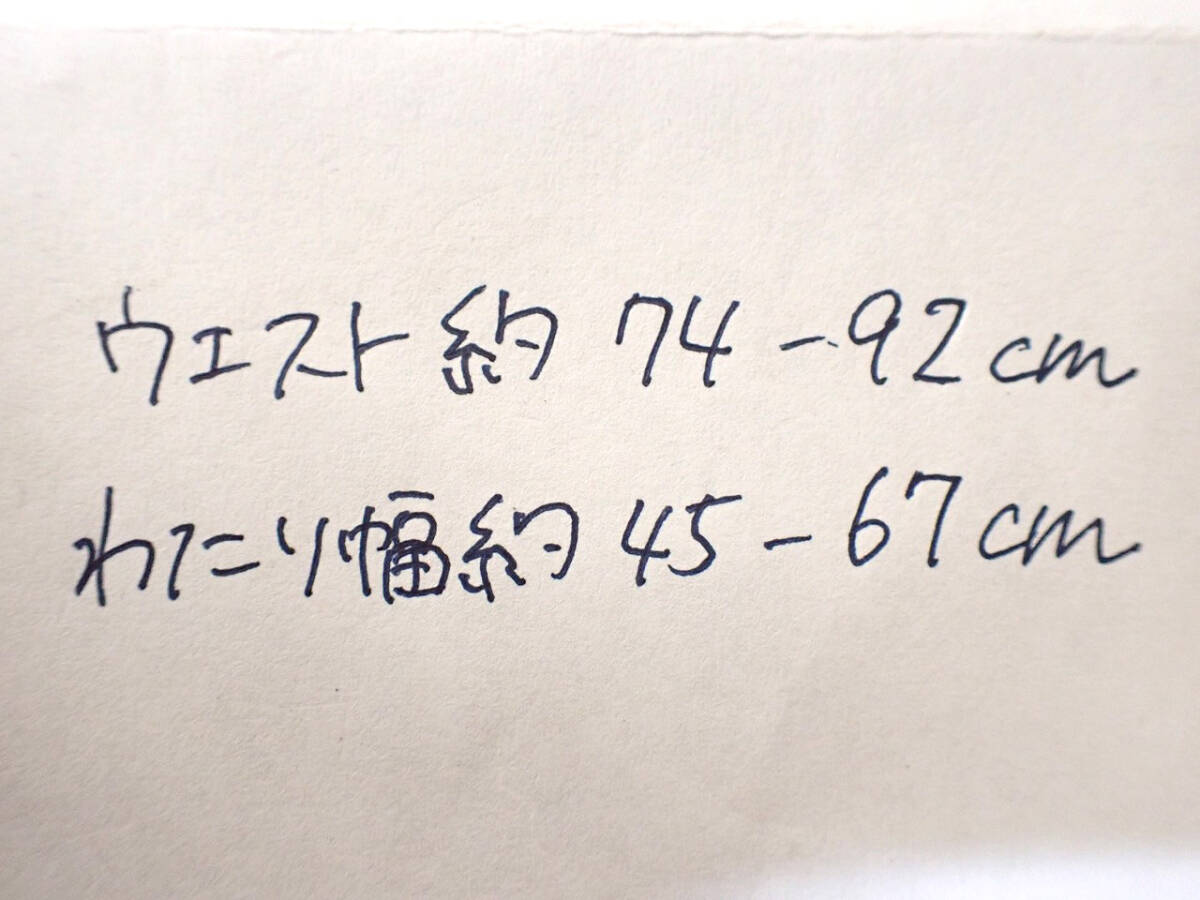 ウエスト約 74-92cm
わたり幅約 45-67cm